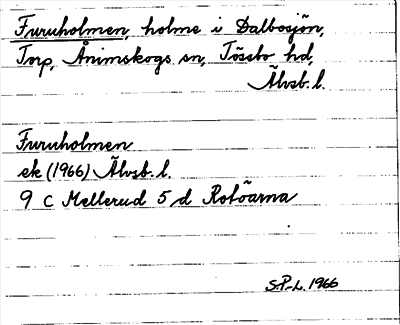 Furuholmen, holme i Dalbosjön,
Torp, Ånimskogs sn, Tössbo hd,
Älvsb. l.
Furuholmen
ek (1966) Älvsb. l.
9 C Mellerud 5 d Rotöarna
S.P-L. 1966